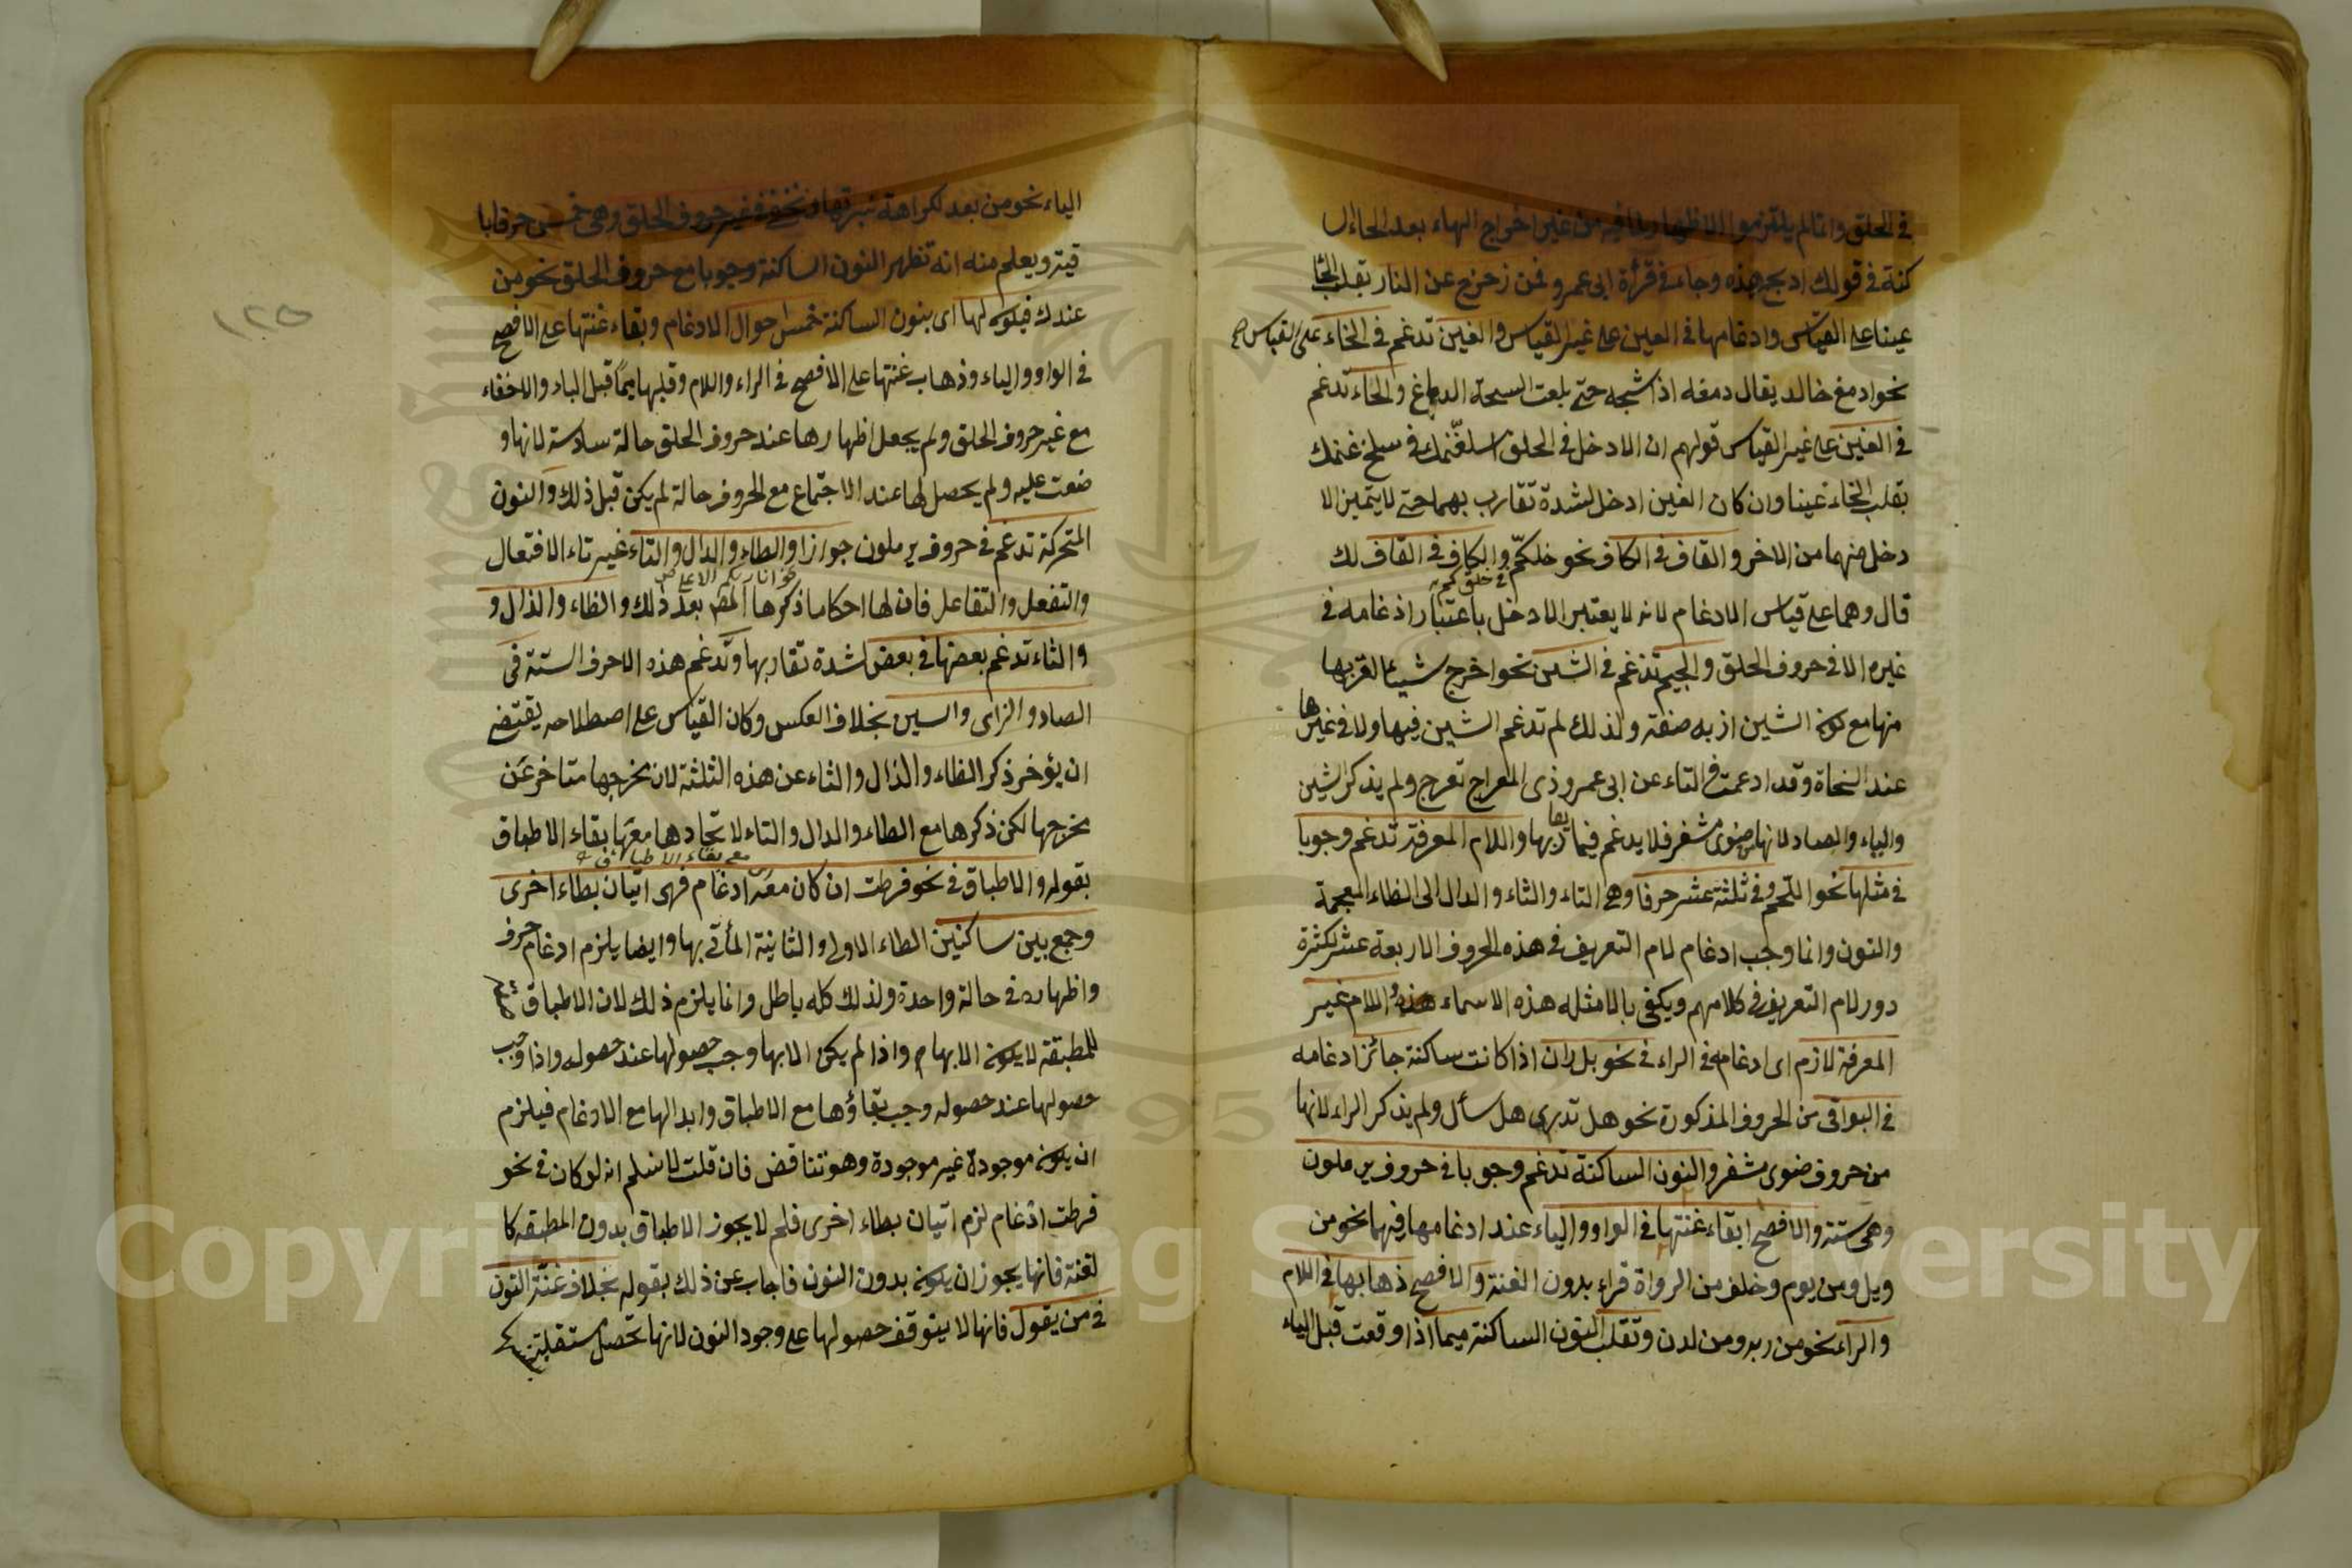 في الحلق وانما لم يلتزموا الاظهار لما فيه من غير اخراج الهاء بعد الحاء ال
كنة في قولك اذبح هذه وجاء في قرأة ابى عمرو فمن زحزح عن النار بقلب الحا
عينا على القياس وادغامها في العين على غير القياس والغين تدغم في الخاء على القياس
نحو ادمغ خالد يقال دمغه اذا شجه حتى بلغت الشجة الدماغ والخاء تدغم
في الغين على غير القياس قولهم ان الادخل في الحلق اسلغنمك في سلخ غنمك
بقلب الخاء غينا وان كان الغين ادخل لشدة تقارب بهما حتى لا يتميز الا
دخل منهما من الاخر والقاف في الكاف نحو خلكم والكاف في القاف لك
في خلقكم
قال وهما على قياس الادغام لانه لا يعتبر الادخل باعتبار ادغامه في
غيره الا في حروف الحلق والجيم تدغم في الشين نحو اخرج شيئا لقربها
منها مع كون الشين ازيد صفة ولذلك لم تدغم الشين فيها ولا في غيرها
عند النحاة وقد ادغمت في التاء عن ابى عمرو ذى المعارج تعرج ولم يذكر الشين
والياء والصاد لانها من ضوى مشفر فلا يدغم فيما يقاربها واللام المعرفة تدغم وجوبا
في مثلها نحو اللحم وفي ثلثة عشر حرفا وهي التاء والثاء والدال الى الظاء المعجمة
والنون وانما وجب ادغام لام التعريف في هذه الحروف الاربعة عشر لكثرة
دور لام التعريف في كلامهم ويكفى بالامثله هذه الاسماء هذه واللام غير
المعرفة لازم اى ادغامه في الراء في نحو بل ران اذا كانت ساكنة جائز ادغامه
في البواقى من الحروف المذكورة نحو هل تدرى هل سأل ولم يذكر الراء لانها
من حروف ضوى مشفر والنون الساكنة تدغم وجوبا في حروف يرملون
وهى ستة والافصح ابقاء غنتها في الواو والياء عند ادغامها فيهما نحو من
ويل ومن يوم وخلف من الرواة قراء بدون الغنة والافصح ذهابها في اللام
والراء نحو من ربه ومن لدن وتقلب النون الساكنة ميما اذا وقعت قبل الباء
١٢٥
الباء نحو من بعد لكراهة نبرتها وتخفى في غير حروف الحلق وهى خمسة عشر حرفا با
قية ويعلم منه انه تظهر النون الساكنة وجوبا مع حروف الحلق نحو من
عندك فيكون لها اى بنون الساكنة خمس احوال الادغام وبقاء غنتها على الافصح
في الواو والياء وذهاب غنتها على الافصح في الراء واللام وقلبها ميما قبل الباء والاخفاء
مع غير حروف الحلق ولم يجعل اظهارها عند حروف الحلق حالة سادسة لانها و
ضعت عليه ولم يحصل لها عند الاجتماع مع الحروف حالة لم يكن قبل ذلك والنون
المتحركة تدغم في حروف يرملون جوازا والطاء والدال والتاء غير تاء الافتعال
نحو انا ربكم الاعلى
والتفعل والتفاعل فان لها احكاما ذكرها المص بعد ذلك والظاء والذال و
والثاء تدغم بعضها في بعض لشدة تقاربها وتدغم هذه الاحرف الستة في
الصاد والزاى والسين بخلاف العكس وكان القياس على اصطلاحه يقتضى
ان يؤخر ذكر الظاء والذال والثاء عن هذه الثلثة لان مخرجها متأخر عن
مخرجها لكن ذكرها مع الطاء والدال والتاء لاتحادها معها بقاء الاطباق
مع بقاء الاطباق
بقوله والاطباق في نحو فرطت ان كان معه ادغام فهى اتيان بطاء اخرى
وجمع بين ساكنين الطاء الاولى والثانية المأتى بها وايضا يلزم ادغام حرف
واظهاره في حالة واحدة ولذلك كله باطل وانما يلزم ذلك لان الاطباق
للمطبقة لا يكون الا بها واذا لم يكن الا بها وجب حصولها عند حصوله واذا وجب
حصولها عند حصوله وجب بقاؤها مع الاطباق وابدالها مع الادغام فيلزم
ان يكون موجودة غير موجودة وهو تناقض فان قلت لا نسلم انه لو كان في نحو
فرطت ادغام لزم اتيان بطاء اخرى فلم لا يجوز الاطباق بدون المطبقه كا
لغنة فانها يجوز ان يكون بدون النون فاجاب عن ذلك بقوله بخلاف غنة النون
في من يقول فانها لا يتوقف حصولها على وجود النون لانها تحصل مستقلة
Copyright © King Saud University